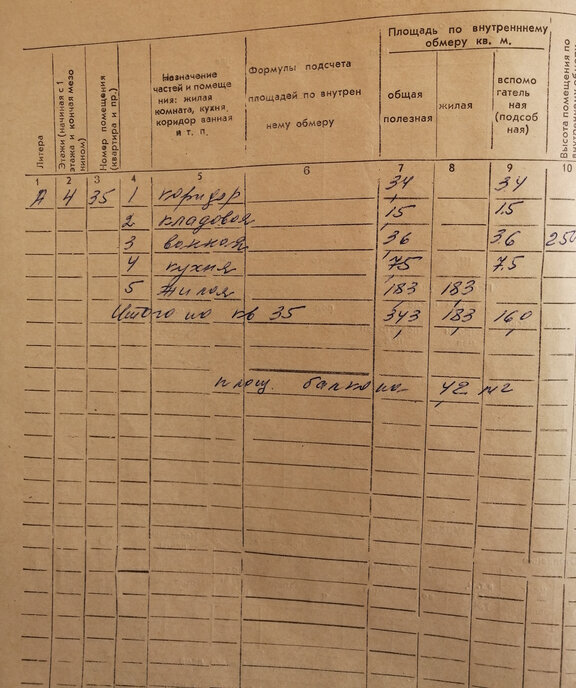 Литера
Этажи (начиная с 1
этажа и кончая мезо
нином)
Номер помещения
(квартира и пр.)
Назначение
частей и помеще
ния: жилая
комната, кухня
коридор ванная
и т. п.
Формулы подсчета
площадей по внутрен
нему обмеру
Площадь по внутреннему
обмеру кв. м.
общая
полезная
жилая
вспомо
гатель
ная
(подсоб
ная)
Высота помещения по
1 2 3 4 5 6 7 8 9 10
А 4 35 1 коридор 3,4 3,4
2 кладовая 1,5 1.5
3 ванная 3,6 3.6 250
4 кухня 7,5 7.5
5 жилая 18,3 18,3
Итого по кв 35 34,3 18,3 16,0
площ. балкона 4,2 м2